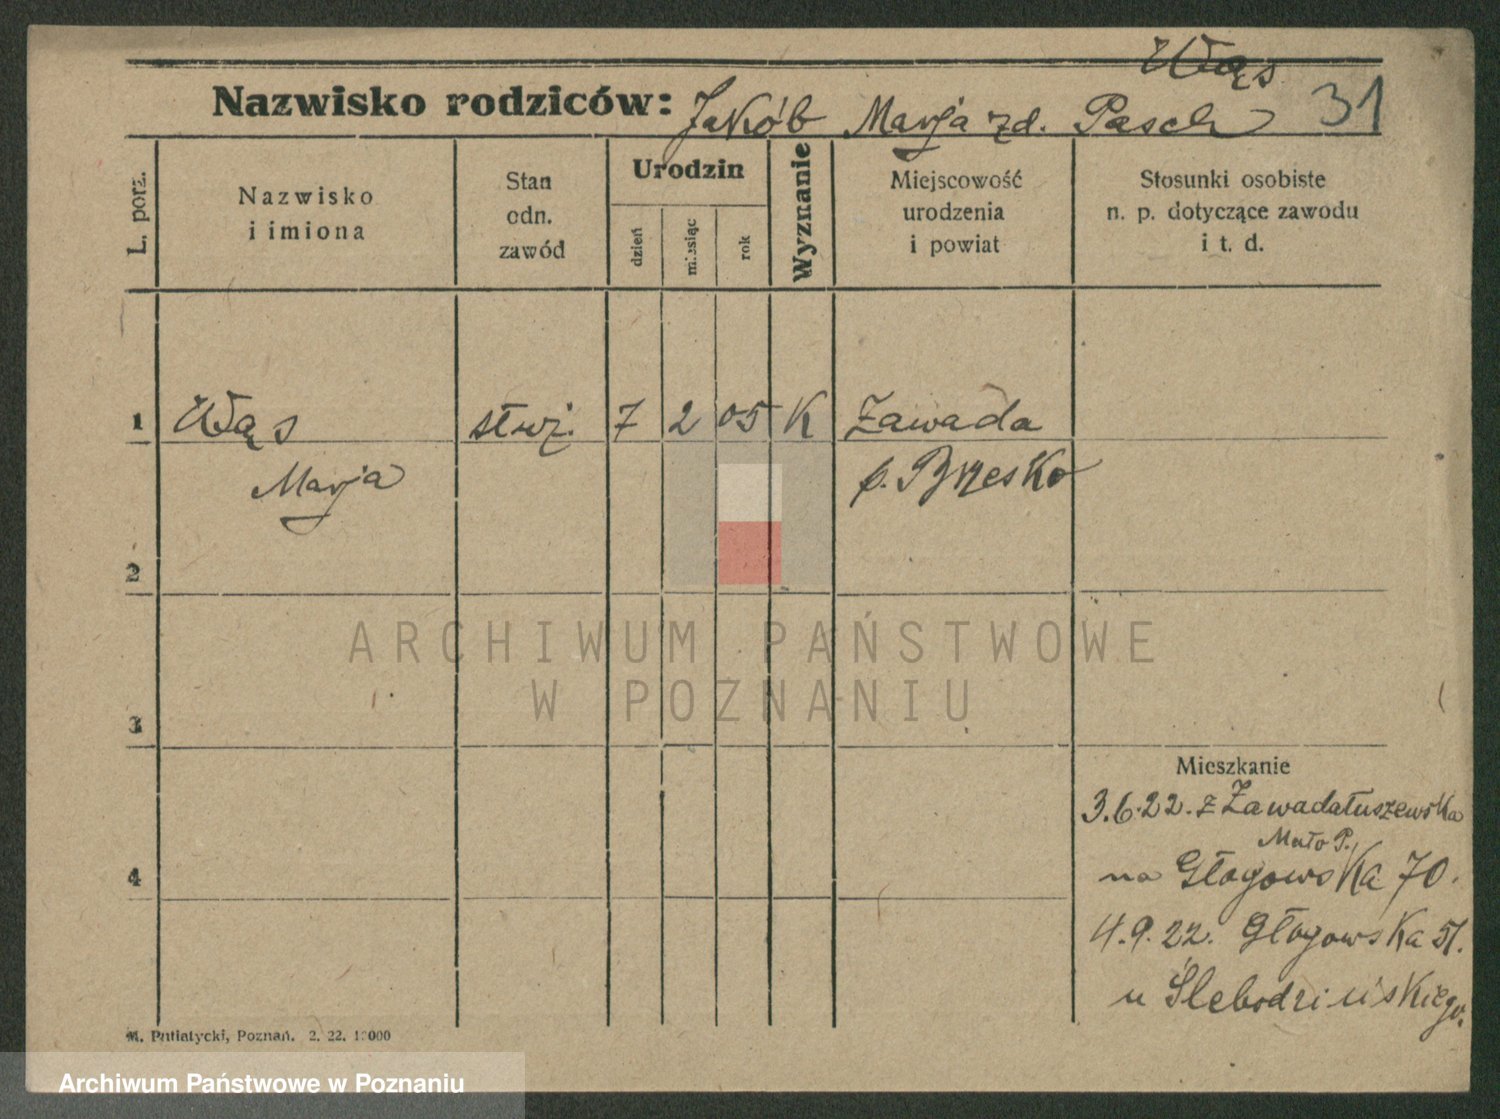 Wąs
Nazwisko rodziców: Jakób Marja zd. Pasch 31
L. porz.
Nazwisko
i imiona
Stan
odn.
zawód
Urodzin
dzień
miesiąc
rok
Wyznanie
Miejscowość
urodzenia
i powiat
Stosunki osobiste
n. p. dotyczące zawodu
i t. d.
1 Wąs służ. 7 2 05 K Zawada
Marja p. Brzesko
2
ARCHIWUM PAŃSTWOWE
W POZNANIU
3
Mieszkanie
3.6.22. z Zawadałuszewska
Mało P.
4
na Głogowska 70.
4.9.22. Głogowska 51.
u Ślebodzińskiego.
M. Putiatycki, Poznań. 2. 22. 10000
Archiwum Państwowe w Poznaniu